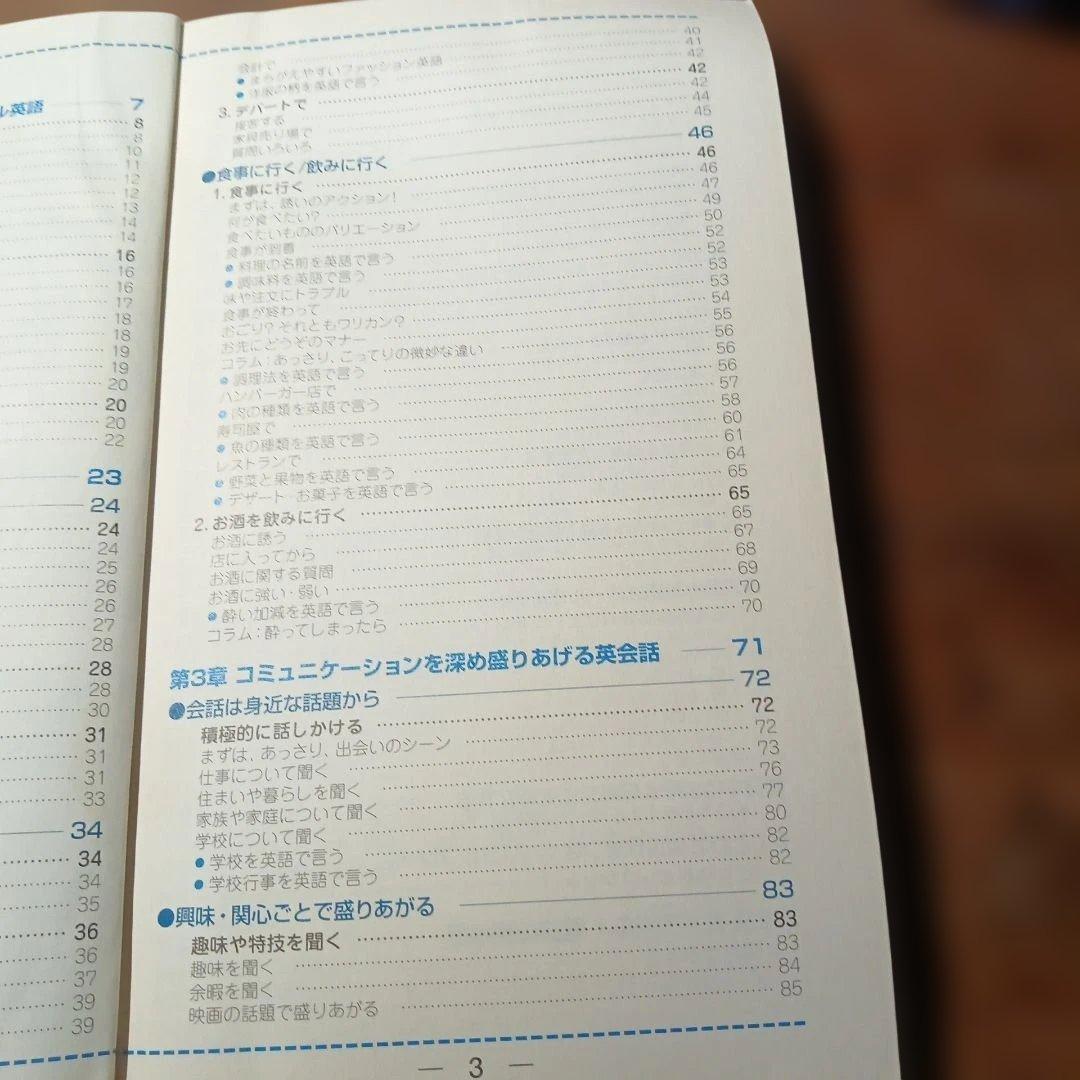 ル英語 7
8
8
10
11
12
12
13
14
14
16
16
16
17
18
18
19
19
20
20
20
22
23
24
24
24
25
26
26
27
28
28
28
30
31
31
31
33
34
34
34
35
36
36
37
39
39
会計で 40
●まちがえやすいファッション英語 41
●洋服の柄を英語で言う 42
3. デパートで 42
接客する 42
家具売り場で 44
質問いろいろ 45
●食事に行く/飲みに行く 46
1. 食事に行く 46
まずは、誘いのアクション! 46
何が食べたい? 47
食べたいもののバリエーション 49
食事が到着 50
●料理の名前を英語で言う 52
●調味料を英語で言う 52
味や注文にトラブル 53
食事が終わって 53
おごり?それともワリカン? 54
お先にどうぞのマナー 55
コラム:あっさり、こってりの微妙な違い 56
●調理法を英語で言う 56
ハンバーガー店で 56
●肉の種類を英語で言う 57
寿司屋で 58
●魚の種類を英語で言う 60
レストランで 61
●野菜と果物を英語で言う 64
●デザート・お菓子を英語で言う 65
2. お酒を飲みに行く 65
お酒に誘う 65
店に入ってから 67
お酒に関する質問 68
お酒に強い・弱い 69
●酔い加減を英語で言う 70
コラム:酔ってしまったら 70
第3章 コミュニケーションを深め盛りあげる英会話 71
●会話は身近な話題から 72
積極的に話しかける 72
まずは、あっさり、出会いのシーン 72
仕事について聞く 73
住まいや暮らしを聞く 76
家族や家庭について聞く 77
学校について聞く 80
●学校を英語で言う 82
●学校行事を英語で言う 82
●興味・関心ごとで盛りあがる 83
趣味や特技を聞く 83
趣味を聞く 83
余暇を聞く 84
映画の話題で盛りあがる 85
— 3 —